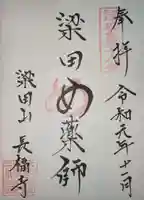 奉拝
令和元年十一月
梁田め薬師
梁田山
長福寺